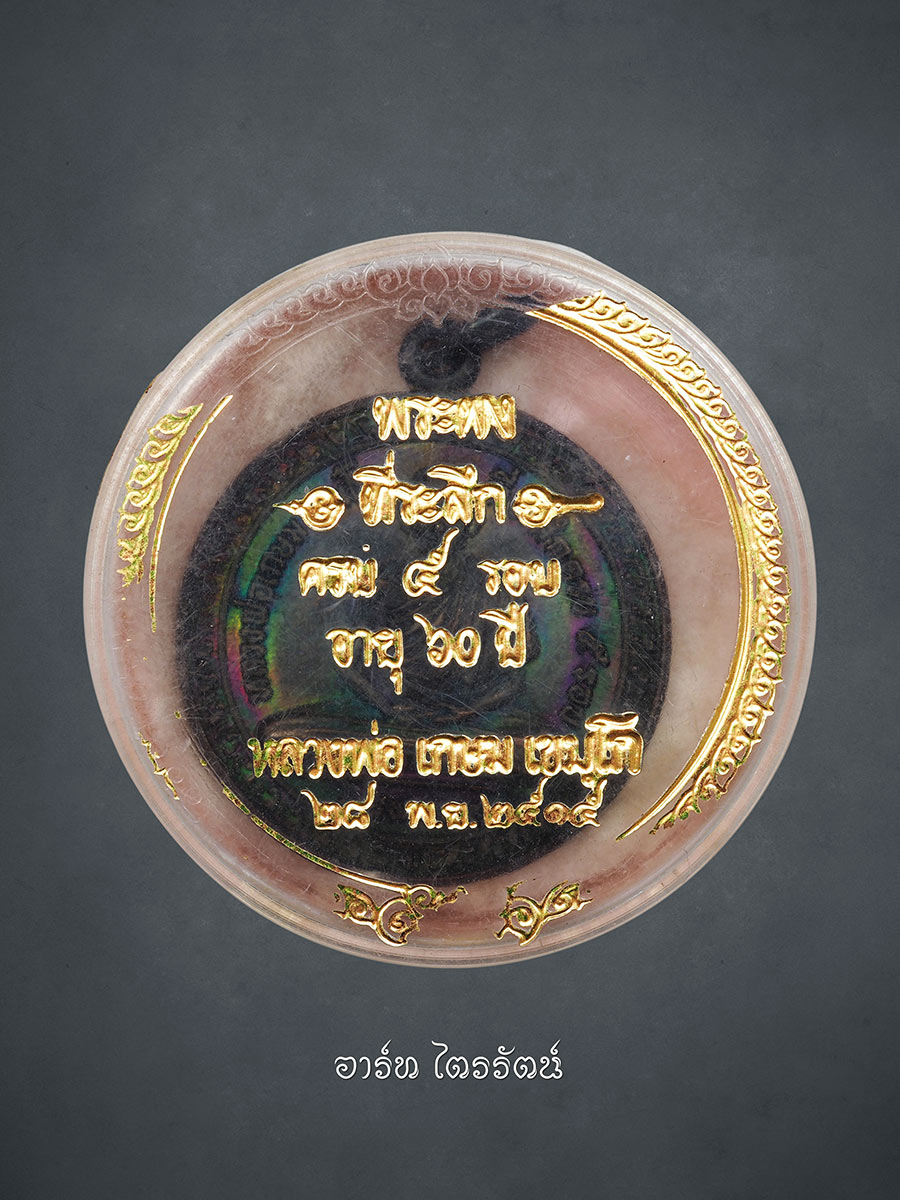 พระผง
ที่ระลึก
ครบ ๕ รอบ
อายุ ๖๐ ปี
หลวงพ่อ เกษม เขมฺโก
๒๘ พ.ย. ๒๕๑๕
อาร์ท ไตรรัตน์